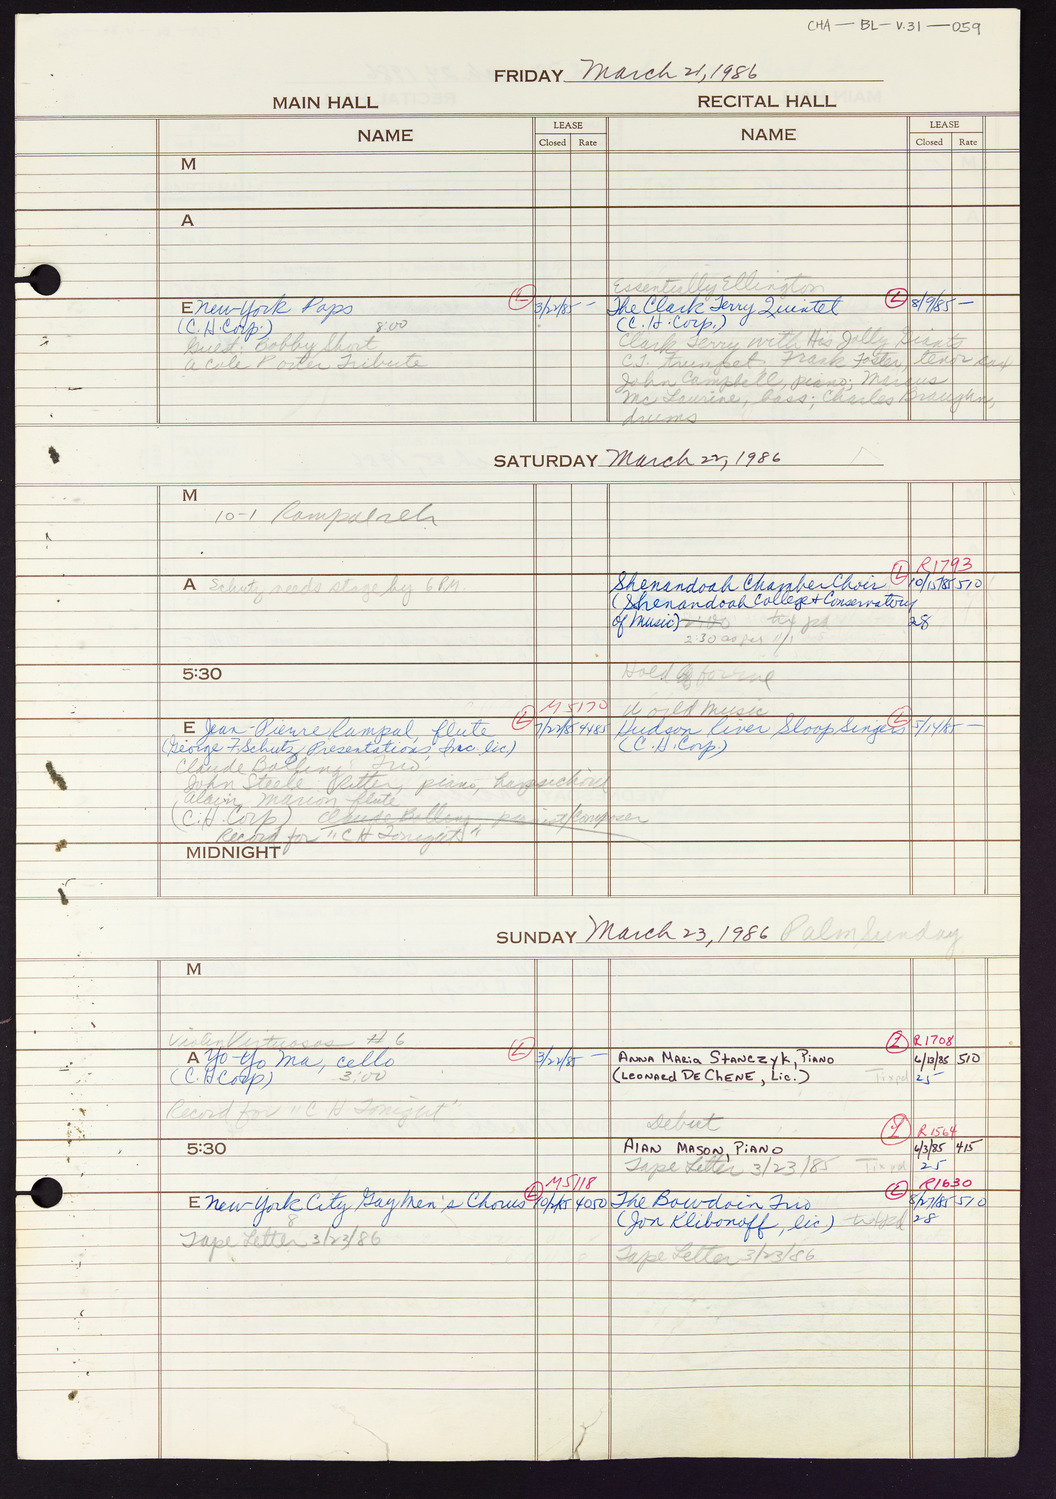 CHA — BL — V.31 — 059
FRIDAY March 21, 1986
MAIN HALL
RECITAL HALL
NAME
LEASE
Closed Rate
NAME
LEASE
Closed Rate
M
A
Essentially Ellington
E New York Pops L 3/22/85 —
(C.H. Corp.) 8:00
Guest: Bobby Short
a Cole Porter Tribute
The Clark Terry Quintet L 8/9/85 —
(C.H. Corp.)
Clark Terry with His Jolly Giants
C.T. Trumpet; Frank Foster, tenor sax
John Campbell, piano; Marcus
McLaurine, bass; Charles Braughn,
drums
SATURDAY March 22, 1986
M
10-1 Rampal reh
A Schutz needs stage by 6 PM
L R1793
Shenandoah Chamber Choir 10/15/85 510
(Shenandoah College & Conservatory
of Music) 2:00 tix pd 28
2:30 as per
5:30
Hold
M5170
E Jean-Pierre Rampal, flute L 7/22/85 4485
(George F. Schutz Presentations, Inc. lic)
Claude Bolling Trio
John Steele Ritter, piano, harpsichord
Alain Marion flute
(C.H. Corp) Claude Bolling, pianist/Composer
Record for "C H Tonight"
World Music
Hudson River Sloop Singers L 5/14/85 —
(C.H. Corp)
MIDNIGHT
SUNDAY March 23, 1986 Palm Sunday
M
Violin Virtuosos #6
A Yo-Yo Ma, cello L 3/22/85 —
(C.H Corp) 3:00
Record for "C H Tonight"
R1708
ANNA MARIA STANCZYK, PIANO 6/13/85 510
(LEONARD DE CHENE, LIC.) Tix pd 25
5:30
Debut
R1564
ALAN MASON, PIANO 6/3/85 415
Tape Letter 3/23/85 Tix pd 25
M5118
E New York City Gay Men's Chorus L 10/2/85 4050
8
Tape Letter 3/23/86
L R1630
The Bowdoin Trio 8/27/85 510
(Jon Klibonoff, lic) tix pd 28
Tape Letter 3/23/86